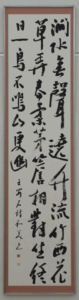 澗水無聲遶竹流竹西花
草弄春柔茅簷相對坐終
日一鳥不鳴山更幽